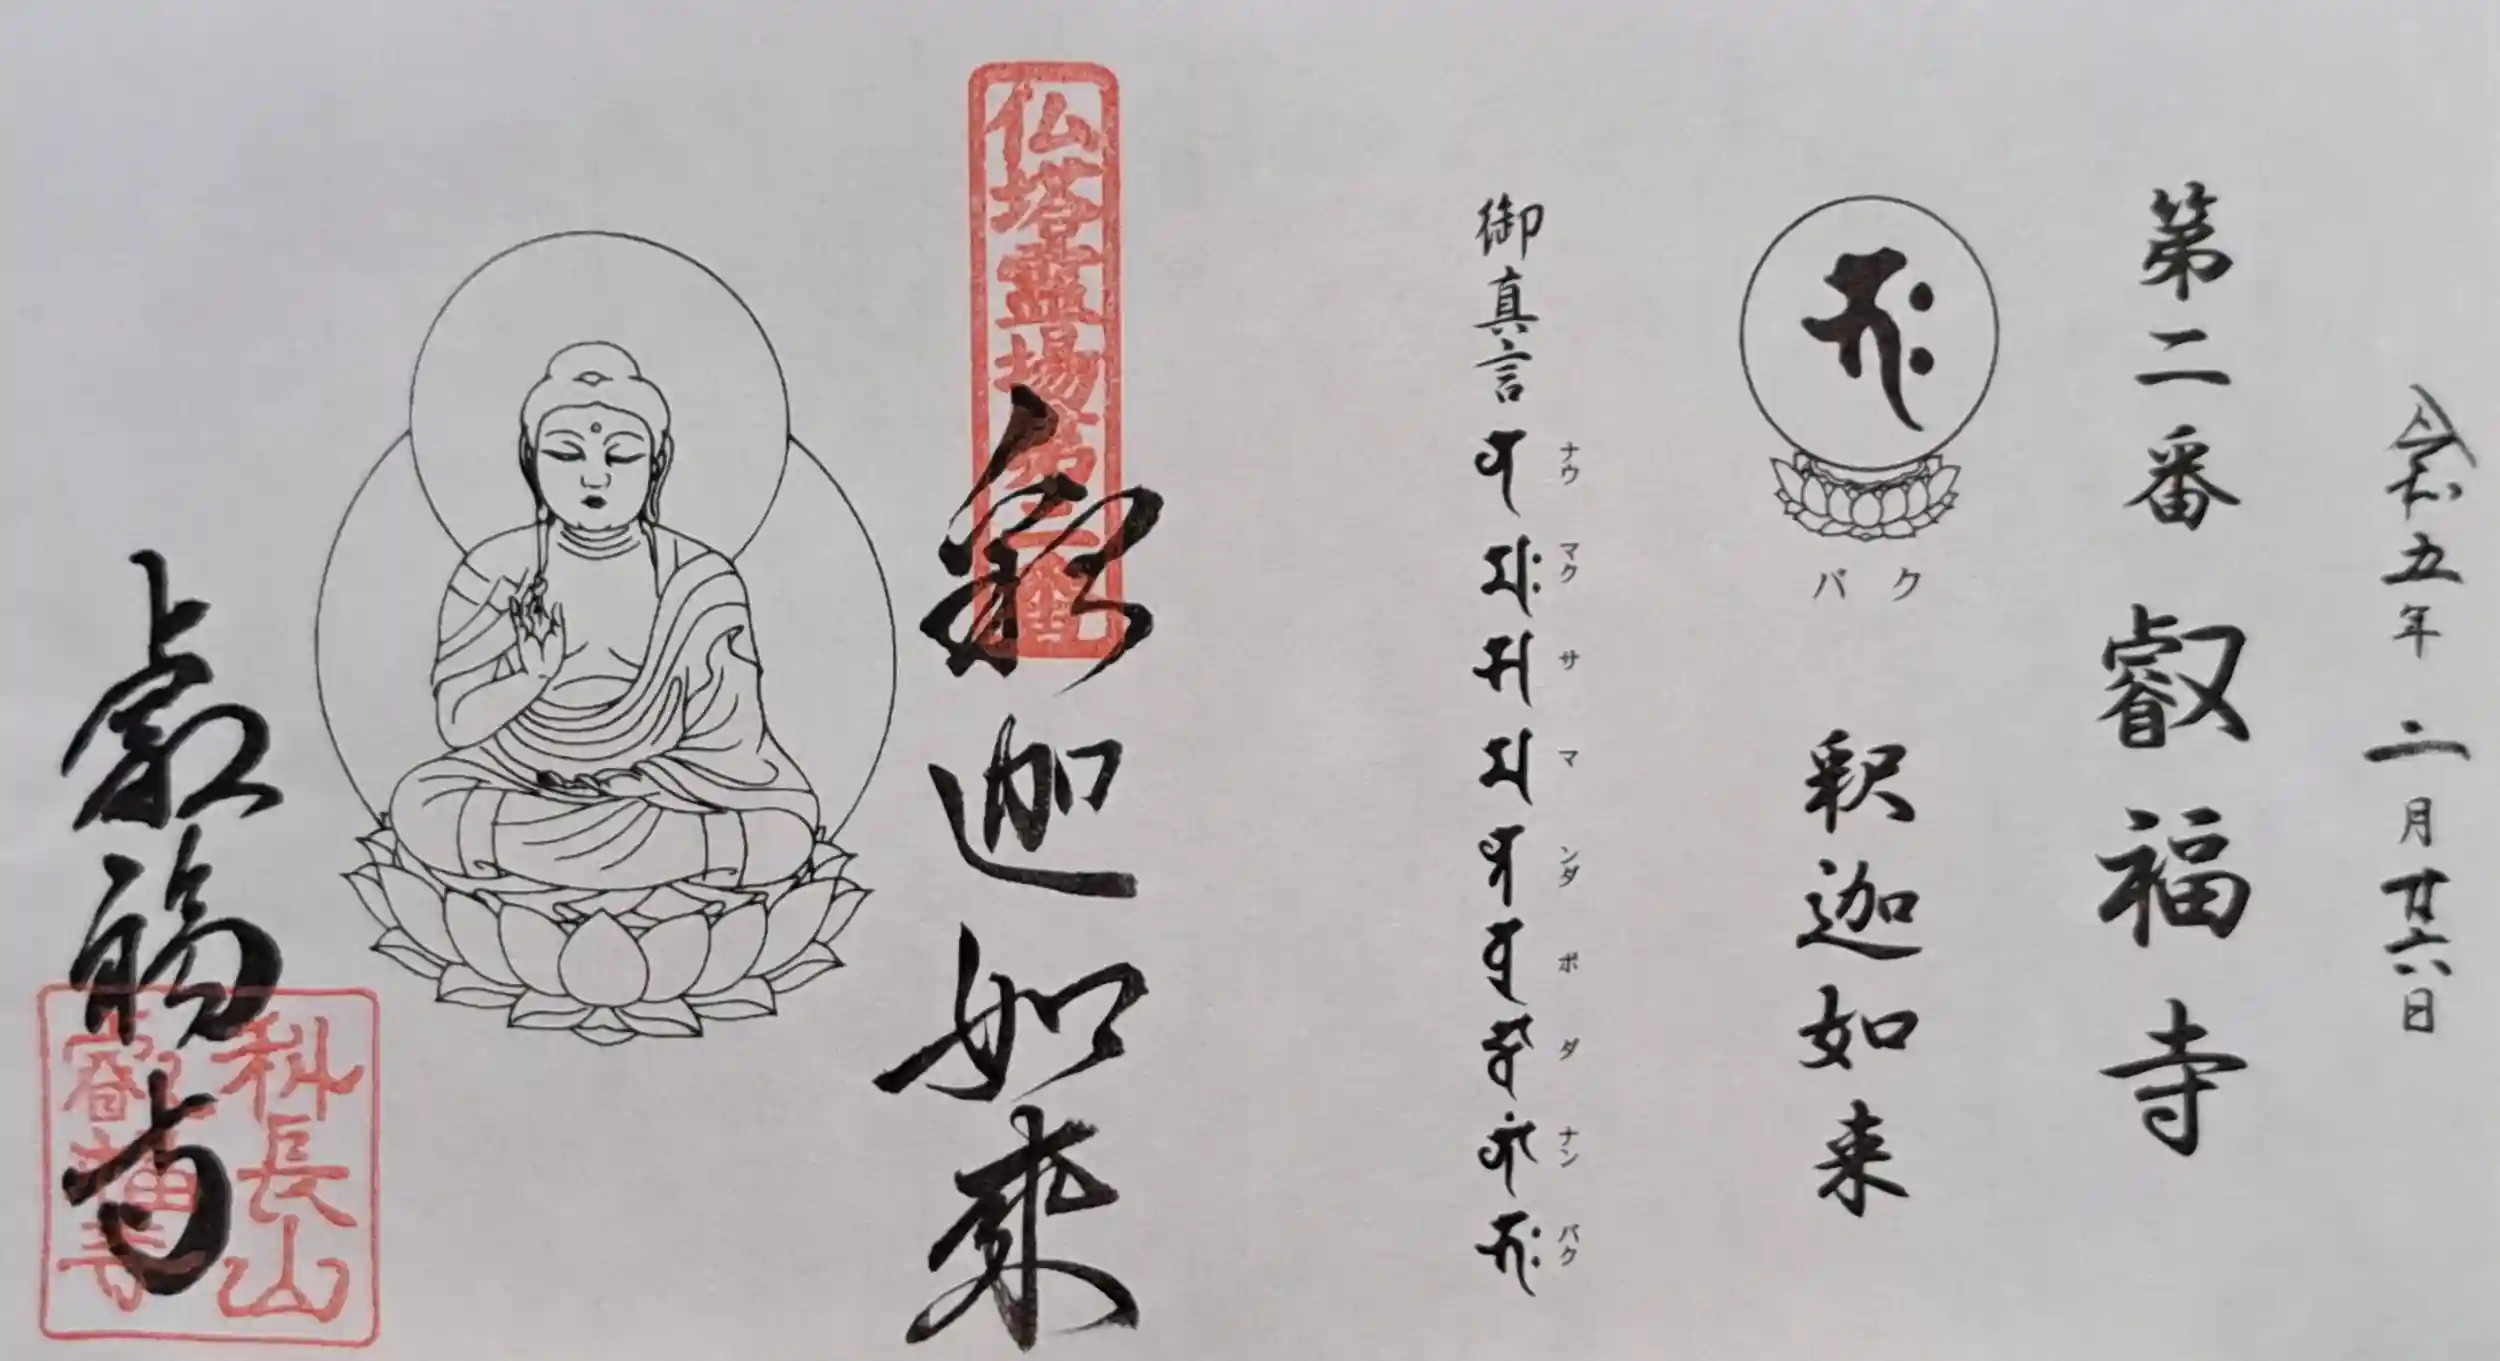 令和五年二月廿六日
第二番 叡福寺
バク
釈迦如来
御真言
ナウ マク サ マ ンダ ボ ダ ナン バク
仏塔霊場第二番
釈迦如来
叡福寺
科長山
叡福寺